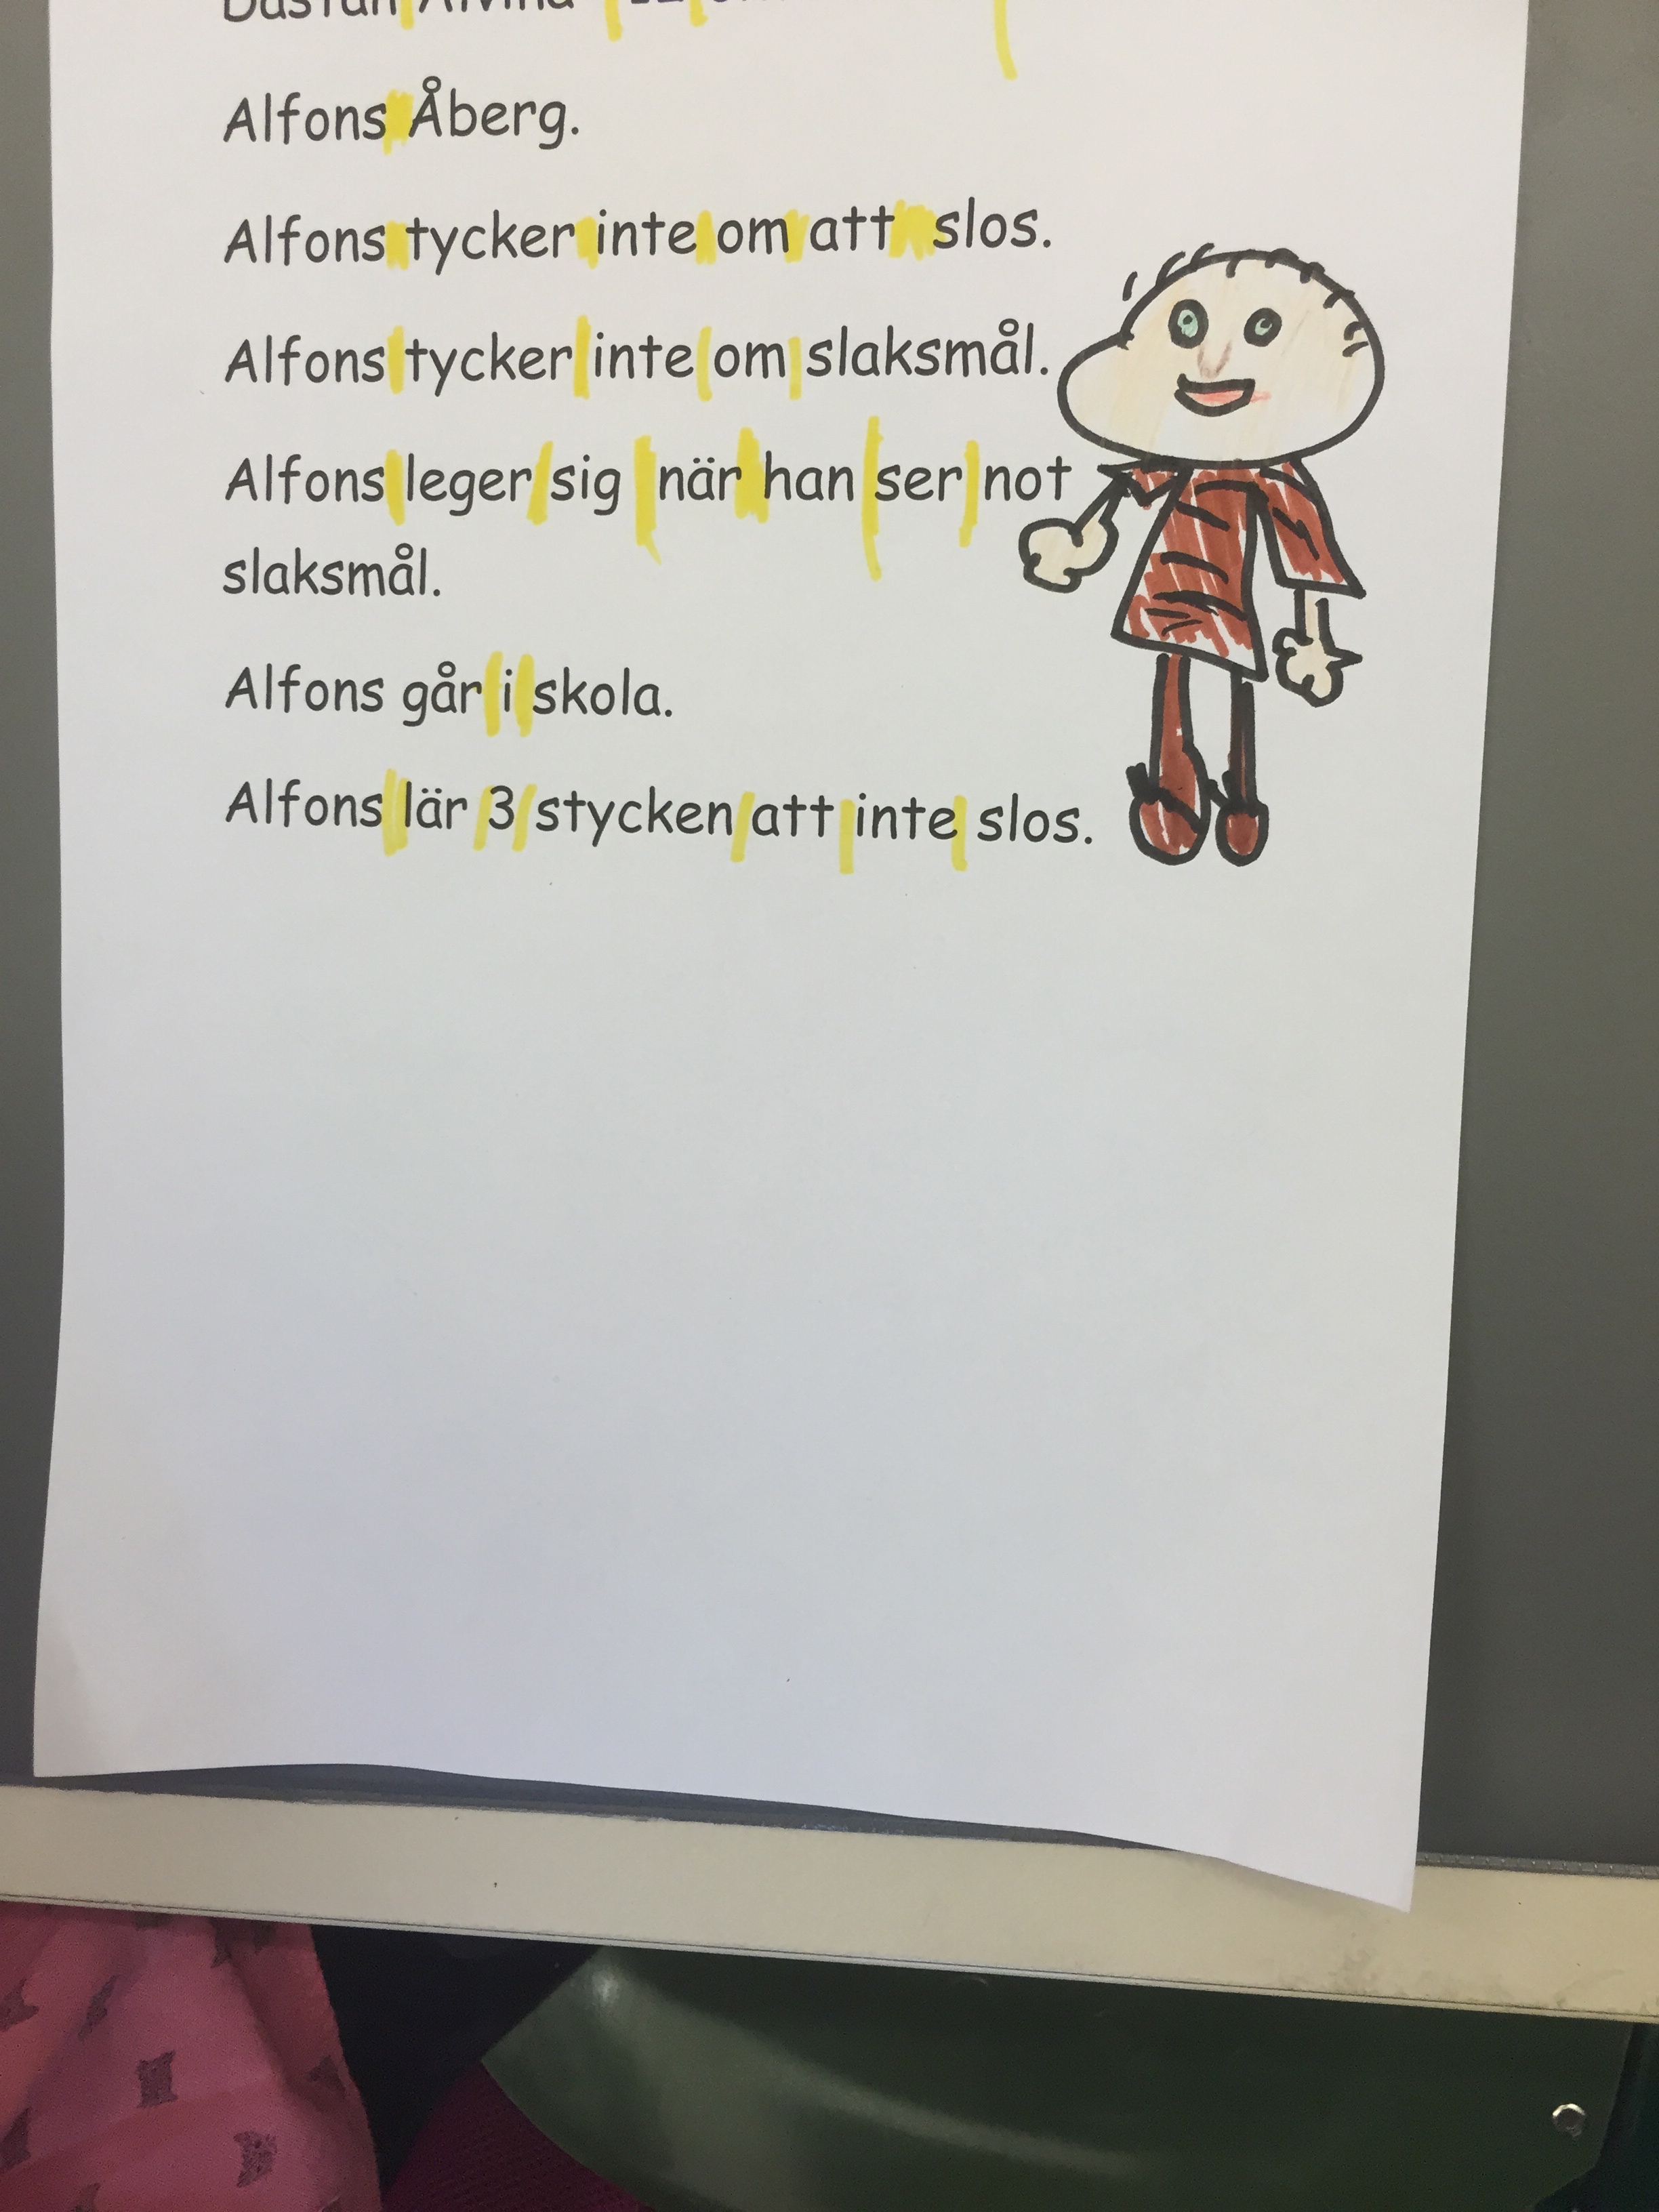 Alfons Åberg.
Alfons tycker inte om att slos.
Alfons tycker inte om slaksmål.
Alfons leger sig när han ser not
slaksmål.
Alfons går i skola.
Alfons lär 3 stycken att inte slos.